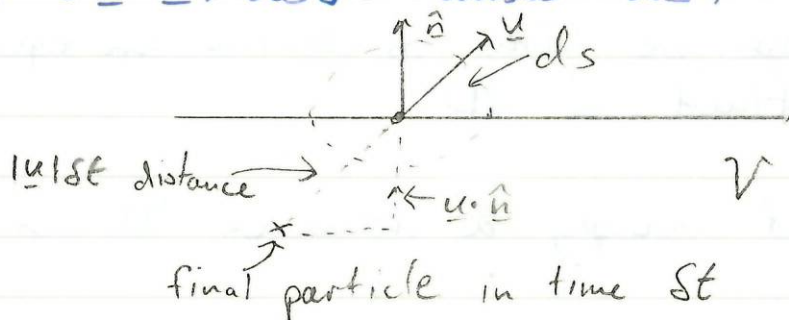 n̂ u
ds
|u|δt distance
V
u·n̂
final particle in time δt